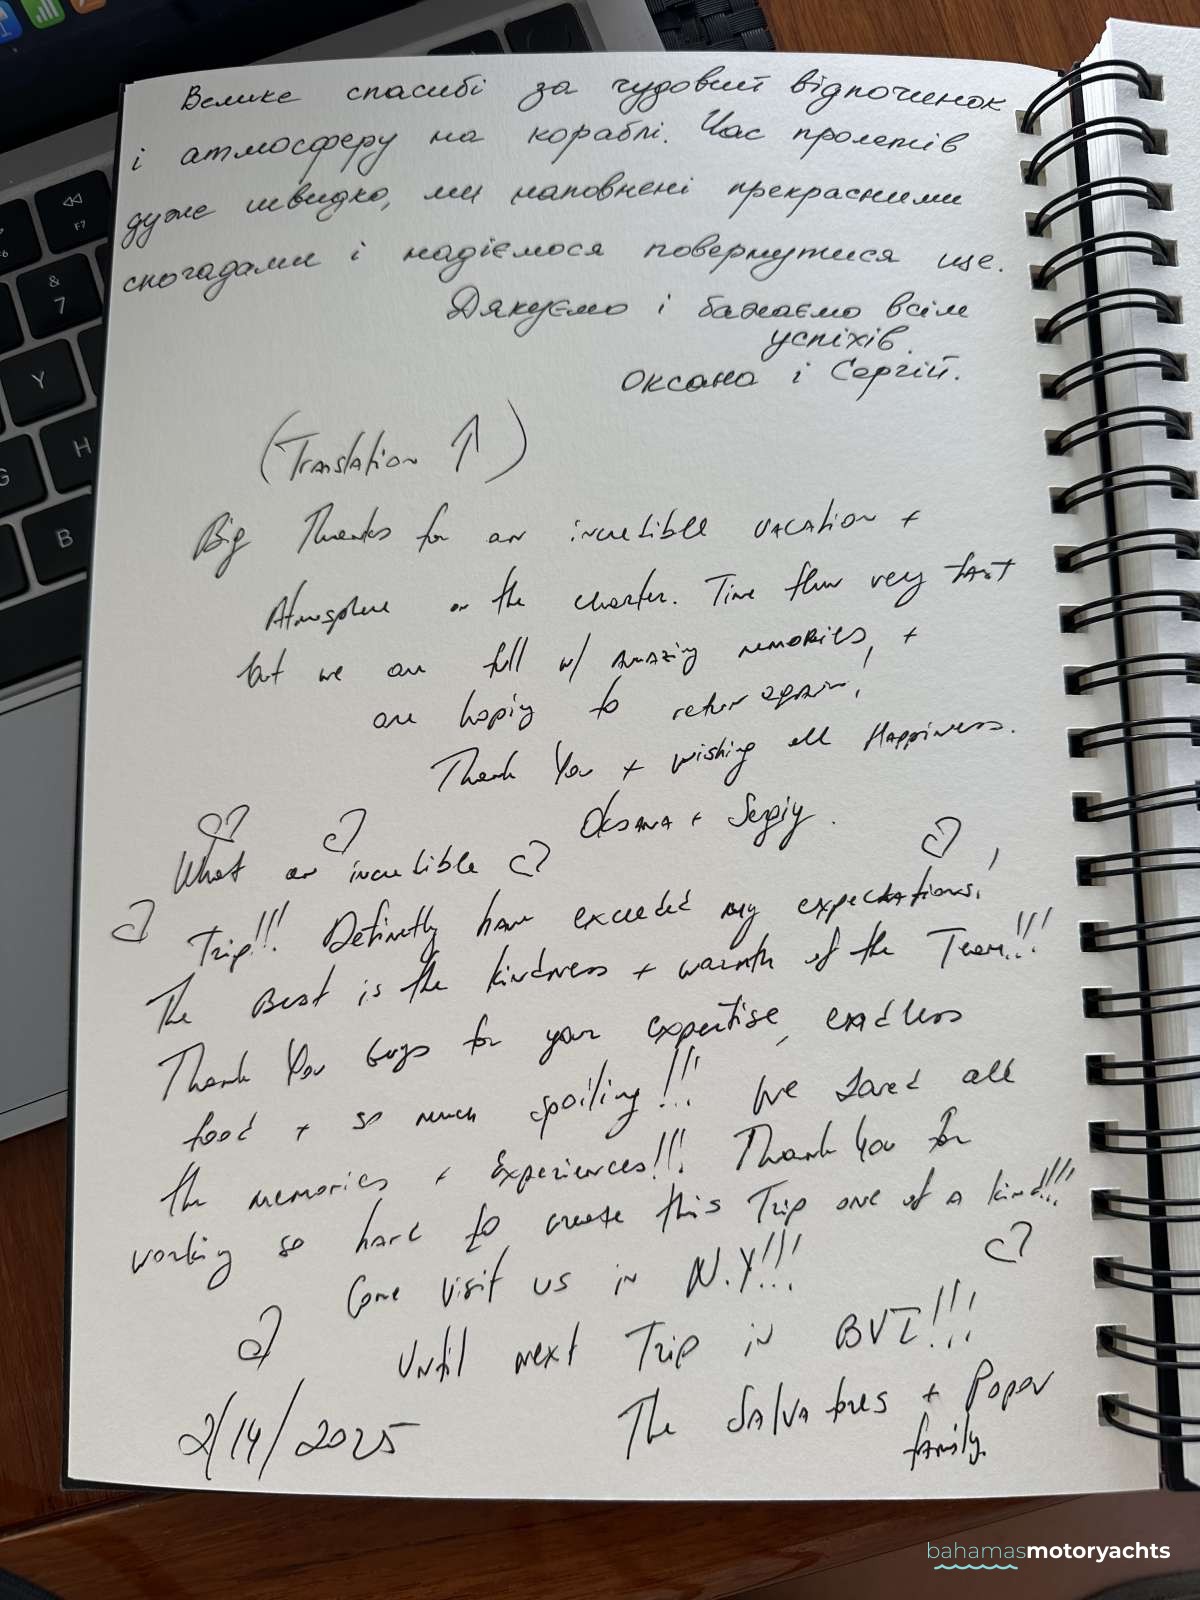 Велике спасибі за чудовий відпочинок
і атмосферу на кораблі. Час пролетів
дуже швидко, ми наповнені прекрасними
спогадами і надіємося повернутися ще.
Дякуємо і бажаємо всім
успіхів.
Оксана і Сергій.
(Translation ↑)
Big Thanks for an incredible vacation +
Atmosphere on the charter. Time flew very fast
but we are full w/ amazing memories, +
are hoping to return again!
Thank You + wishing all Happiness.
Oksana + Sergiy.
What an incredible
Trip!!! Definetly have exceeded my expectations!
The Best is the kindness + warmth of the Team!!!
Thank You Guys for your expertise, endless
food + so much spoiling!!! We Loved all
the memories + Experiences!!! Thank You for
working so hard to create this Trip one of a kind!!!
Come visit us in N.Y!!!
Until next Trip in BVI!!!
2/14/2025 The Salvatores + Popov
family.
F7
&
7
Y
H
G
B
bahamasmotoryachts